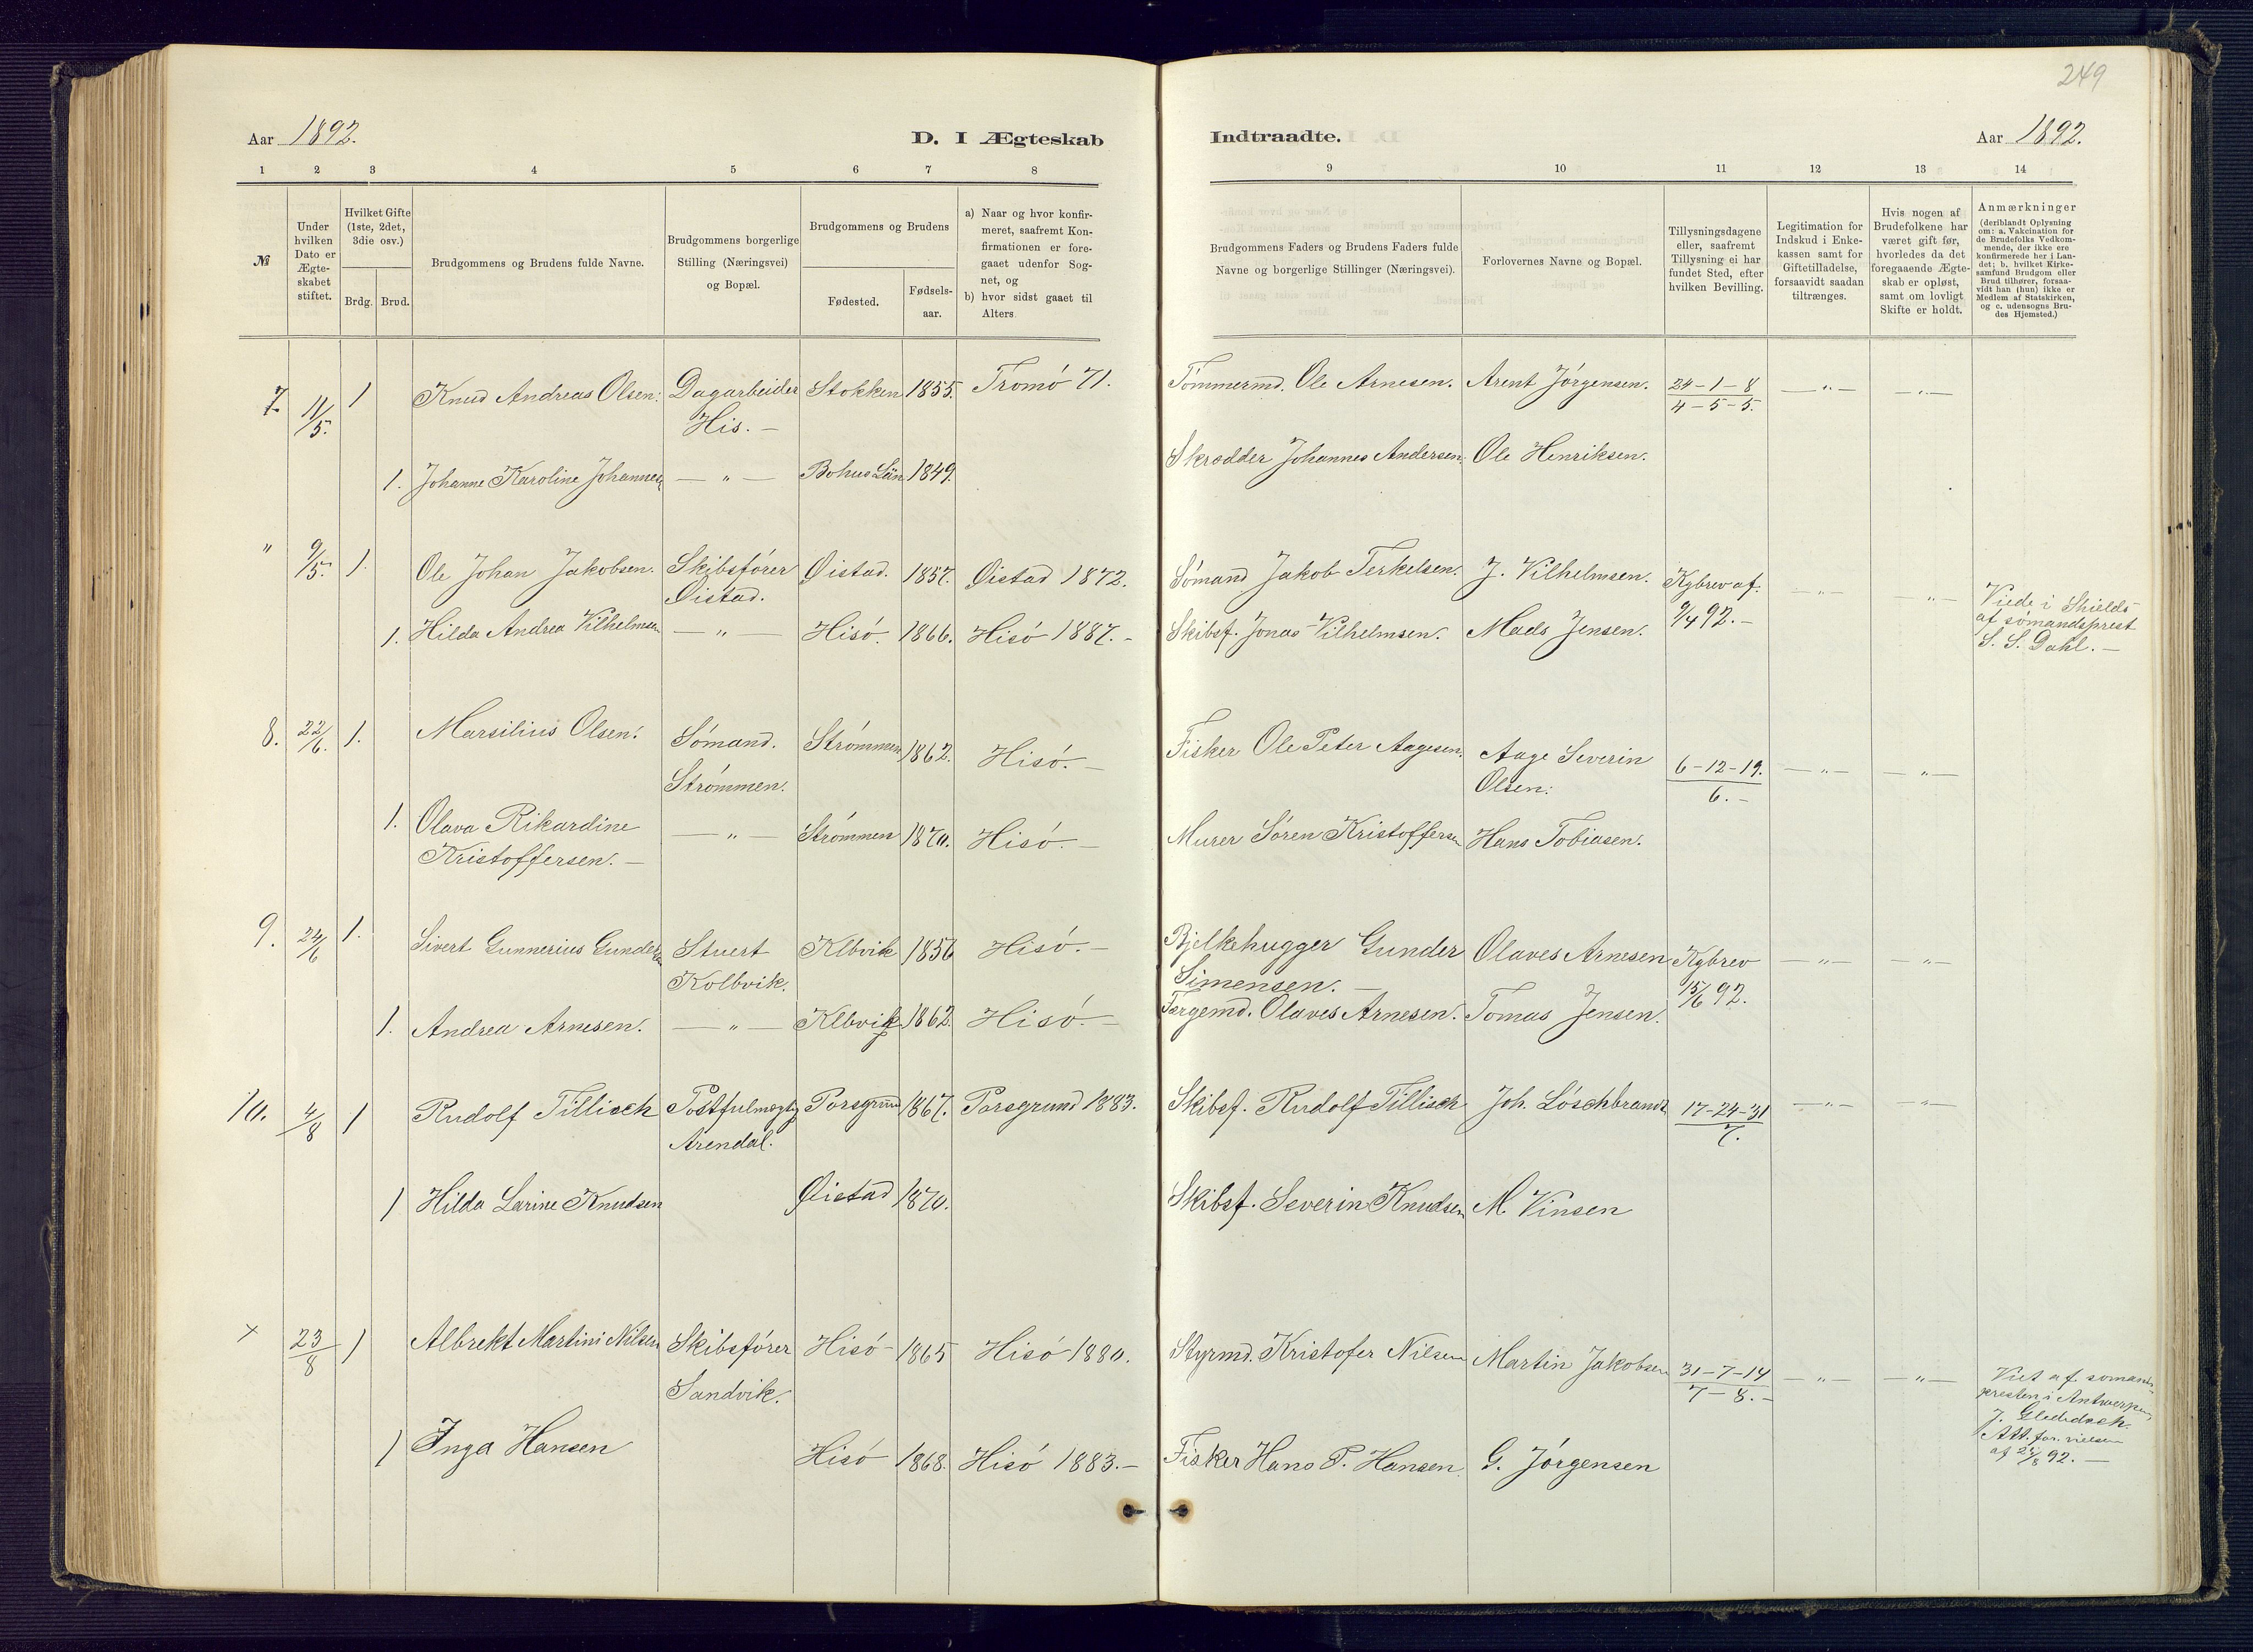 249
Aar 1892.
D. I Ægteskab
Indtraadte.
Aar 1892.
1 2 3 4 5 6 7 8
9 10 11 12 13 14
№
Under hvilken Dato er Ægte-skabet stiftet.
Hvilket Gifte (1ste, 2det, 3die osv.)
Brdg. Brud.
Brudgommens og Brudens fulde Navne.
Brudgommens borgerlige Stilling (Næringsvei) og Bopæl.
Brudgommens og Brudens
Fødested.
Fødsels-aar.
a) Naar og hvor konfir-meret, saafremt Kon-firmationen er fore-gaaet udenfor Sog-net, og
b) hvor sidst gaaet til Alters
Brudgommens Faders og Brudens Faders fulde Navne og borgerlige Stillinger (Næringsvei).
Forlovernes Navne og Bopæl.
Tillysningsdagene eller, saafremt Tillysning ei har fundet Sted, efter hvilken Bevilling.
Legitimation for Indskud i Enke-kassen samt for Giftetilladelse, forsaavidt saadan tiltrænges.
Hvis nogen af Brudefolkene har været gift før, hvorledes da det foregaaende Ægte-skab er opløst, samt om lovligt Skifte er holdt.
Anmærkninger
(deriblandt Oplysning om: a. Vakcination for de Brudefolks Vedkom-mende, der ikke ere konfirmerede her i Lan-det; b. hvilket Kirke-samfund Brudgom eller Brud tilhører, forsaa-vidt han (hun) ikke er Medlem af Statskirken, og c. udensogns Bru-des Hjemsted.)
7. 11/5. 1 Knud Andreas Olsen. Dagarbeider Stokken 1855. Tromö 71. Tömmermd. Ole Arnesen. Arent Jörgensen. 24-1-8 — " — — " —
His. — 4-5-5.
1. Johanne Karoline Johannes — " — Bohus Län 1849. Skrædder Johannes Andersen. Ole Henriksen.
" 9/5. 1. Ole Johan Jakobsen. Skibsförer Øistad. 1857. Øistad 1872. Sömand Jakob Terkelsen. J. Vilhelmsen. Kgbrev af — " — — " — Viede i Shields
Øistad. 9/4 92. — af sömandsprest
1. Hilda Andrea Vilhelmsen — " — Hisö. 1866. Hisö 1887. - Skibsf. Jonas Vilhelmsen. Mads Jensen. S. S. Dahl. —
8. 22/6. 1. Marsilius Olsen. Sömand. Strömmen 1862. Hisö. — Fisker Ole Peter Aagesen. Aage Severin 6-12-19. — " — — " —
Strömmen. Olsen. 6. -
1. Olava Rikardine — " — Strömmen 1870. Hisö. — Murer Sören Kristoffersen Hans Tobiasen.
Kristoffersen. —
9. 24/6 1. Sivert Gunnerius Gundersen Stuert Klbvik 1856 Hisö. — Bjelkehugger Gunder Olaves Arnesen Kgbrev — " — — " —
Kolbvik. Simensen. — 15/6 92.
1. Andrea Arnesen. — " — Klbvik 1862. Hisö. — Færgemd. Olaves Arnesen. Tomas Jensen.
10. 4/8 1 Rudolf Tillisch Postfulmægtig Porsgrund 1867. Porsgrund 1883. Skibsf. Rudolf Tillisch Joh. Löschbrandt 17-24-31 — " — — " —
Arendal. 7.
1 Hilda Larine Knudsen Øistad 1870. Skibsf. Severin Knudsen M. Vinsen
x 23/8 1 Albrekt Martini Nilsen Skibsförer Hisö 1865 Hisö 1880. Styrmd. Kristofer Nilsen Martin Jakobsen 31-7-14 — " — — " — Viet af sömands-
Sandvik. 7-8. - presten i Antwerpen
J. Gleditsch.
1 Inga Hansen Hisö 1868. Hisö 1883. — Fisker Hans P. Hansen. G. Jörgensen Att. for vielsen
af 92. —